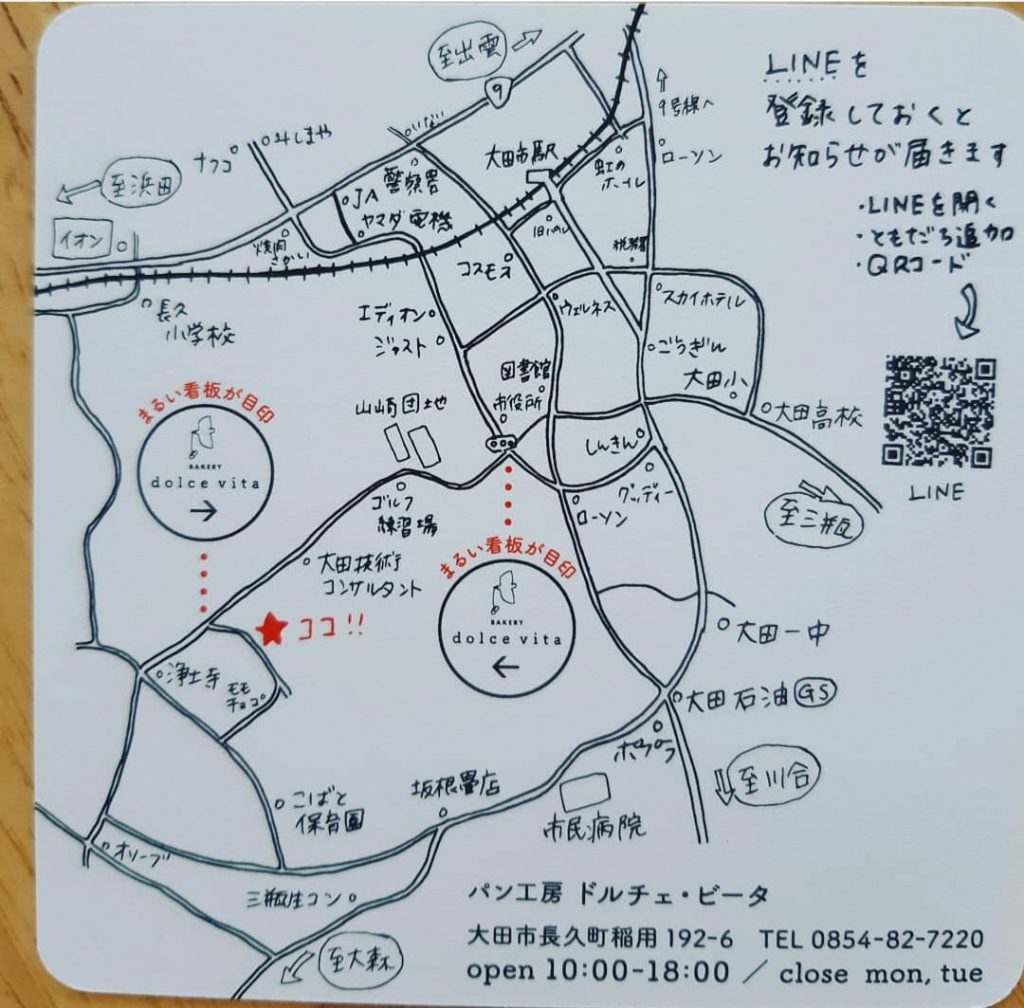 至出雲
9
9号線へ
LINEを
登録しておくと
お知らせが届きます
・LINEを開く
・ともだち追加
・QRコード
LINE
みしまや
ナフコ
いない
警察署
JA
ヤマダ電機
大田市駅
虹の
ホール
ローソン
至浜田
イオン
焼肉
さかい
コスモス
税務署
長久
小学校
エディオン
ジャスト
ウェルネス
スカイホテル
ごうぎん
大田小
大田高校
図書館
市役所
山崎団地
しんきん
グッディー
ローソン
至三瓶
ゴルフ
練習場
まるい看板が目印
BAKERY
dolce vita
→
大田技術
コンサルタント
まるい看板が目印
BAKERY
dolce vita
←
★ココ!!
大田一中
浄土寺
モモ
チョコ
大田石油 GS
ポプラ
至川合
こばと
保育園
坂根畳店
市民病院
オリーブ
三瓶生コン
至大森
パン工房 ドルチェ・ビータ
大田市長久町稲用 192-6 TEL 0854-82-7220
open 10:00-18:00 / close mon, tue